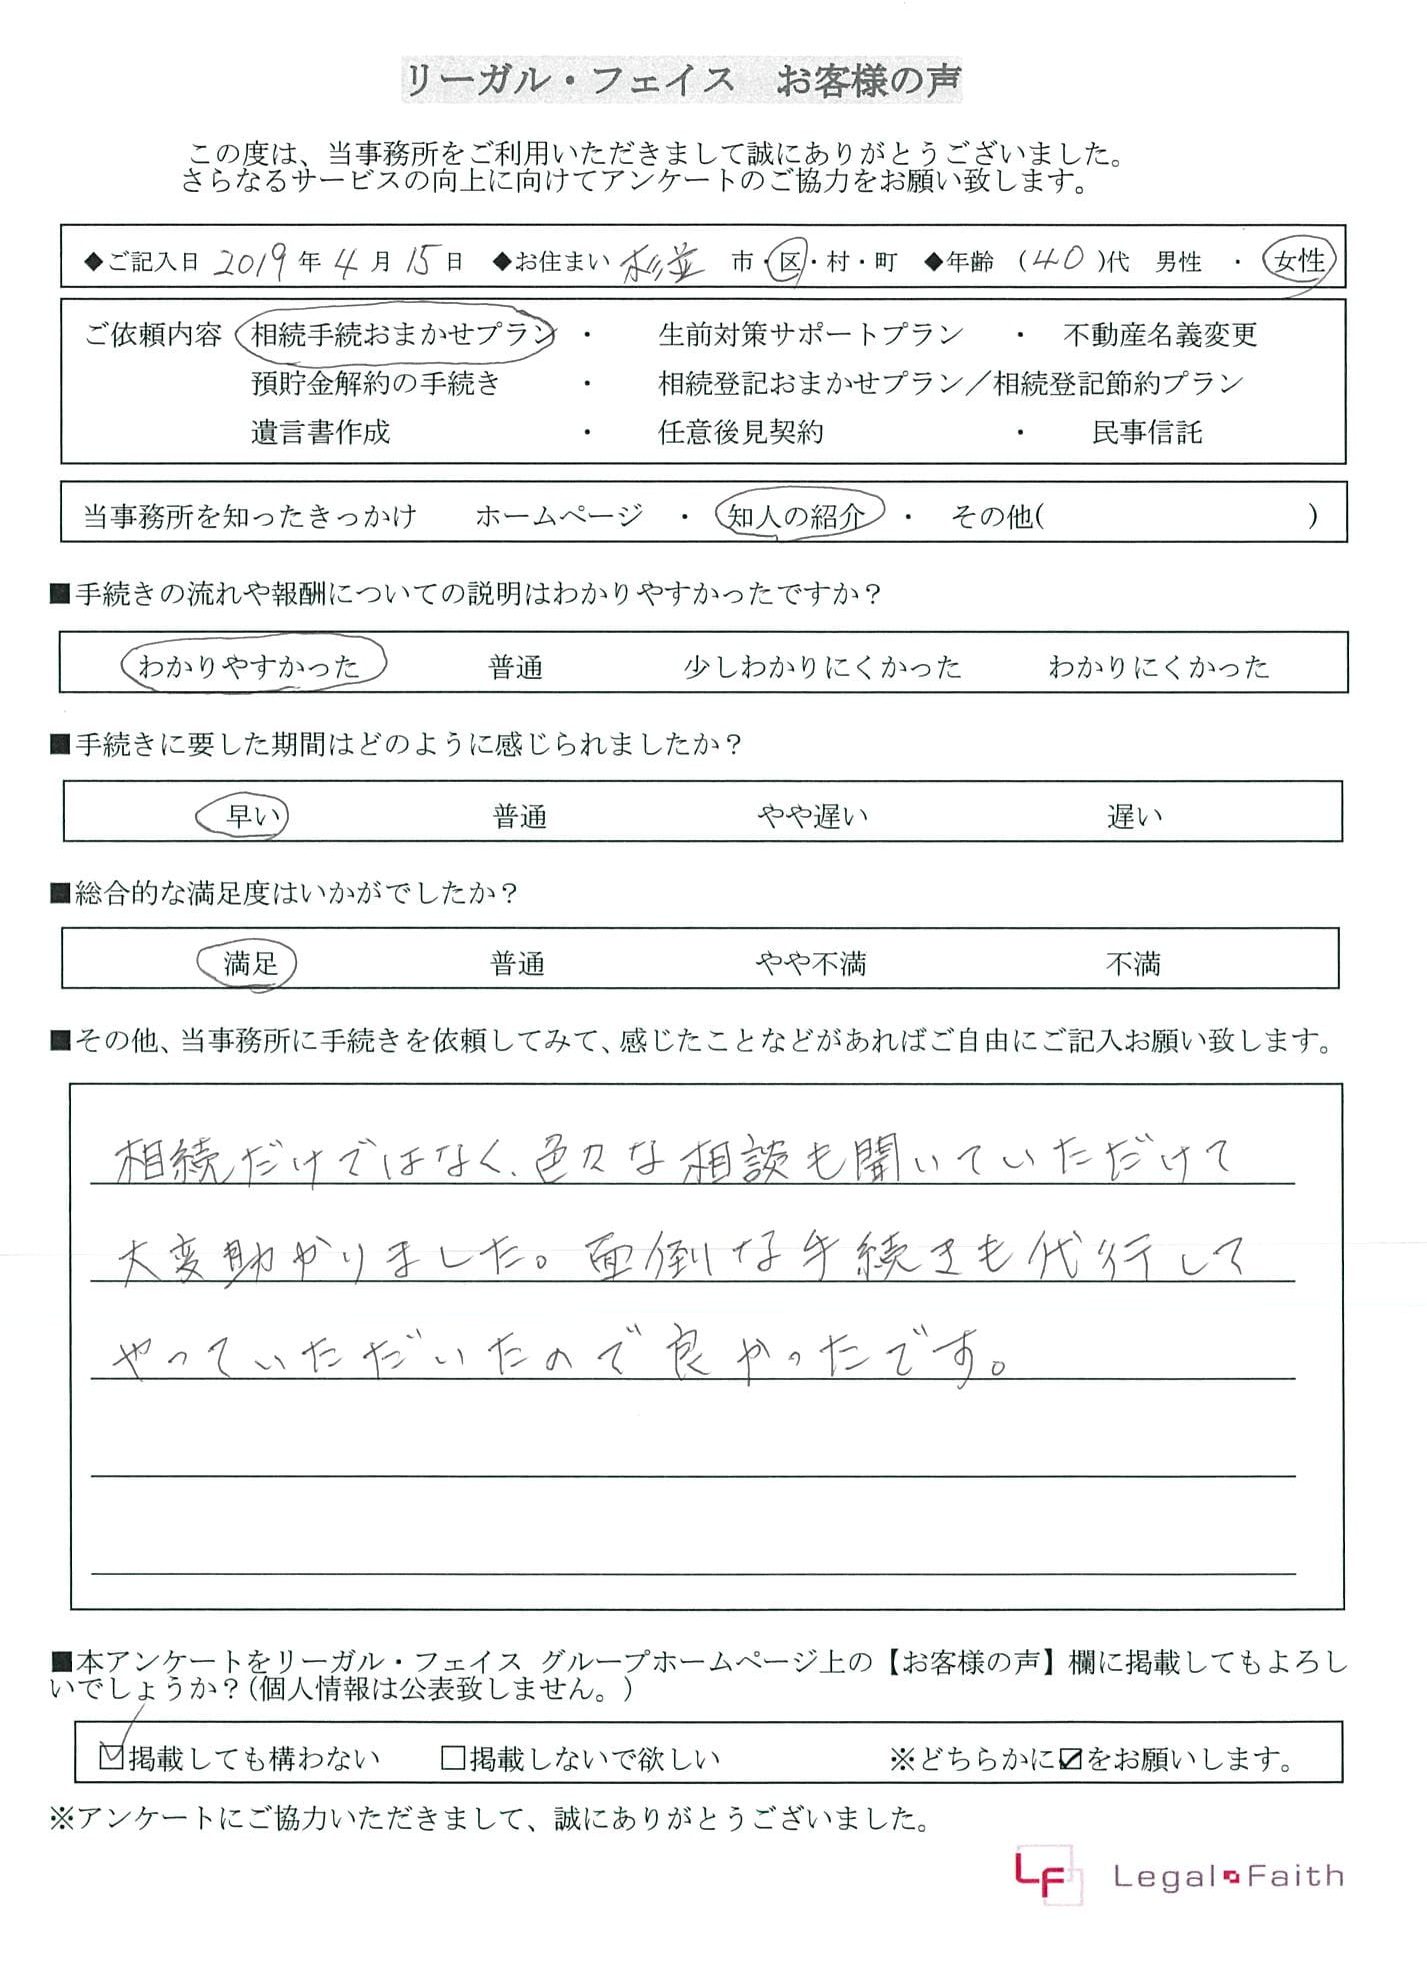 リーガル・フェイス　お客様の声
この度は、当事務所をご利用いただきまして誠にありがとうございました。
さらなるサービスの向上に向けてアンケートのご協力をお願い致します。
◆ご記入日 2019 年 4 月 15 日 ◆お住まい 杉並 市・区・村・町 ◆年齢 (40)代 男性 ・ 女性
ご依頼内容 相続手続おまかせプラン ・ 生前対策サポートプラン ・ 不動産名義変更
預貯金解約の手続き ・ 相続登記おまかせプラン／相続登記節約プラン
遺言書作成 ・ 任意後見契約 ・ 民事信託
当事務所を知ったきっかけ ホームページ ・ 知人の紹介 ・ その他( )
■手続きの流れや報酬についての説明はわかりやすかったですか？
わかりやすかった 普通 少しわかりにくかった わかりにくかった
■手続きに要した期間はどのように感じられましたか？
早い 普通 やや遅い 遅い
■総合的な満足度はいかがでしたか？
満足 普通 やや不満 不満
■その他、当事務所に手続きを依頼してみて、感じたことなどがあればご自由にご記入お願い致します。
相続だけではなく、色々な相談も聞いていただけて
大変助かりました。面倒な手続きも代行して
やっていただいたので良かったです。
■本アンケートをリーガル・フェイス グループホームページ上の【お客様の声】欄に掲載してもよろし
いでしょうか？(個人情報は公表致しません。)
☑掲載しても構わない □掲載しないで欲しい ※どちらかに☑をお願いします。
※アンケートにご協力いただきまして、誠にありがとうございました。
LF Legal Faith